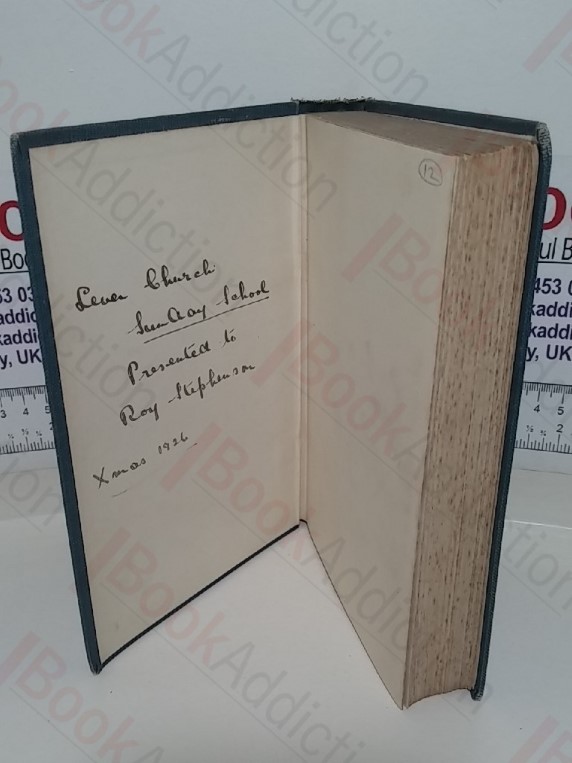 Leven Church
Sunday School
Presented to
Roy Stephenson
Xmas 1936
12
BookAddiction